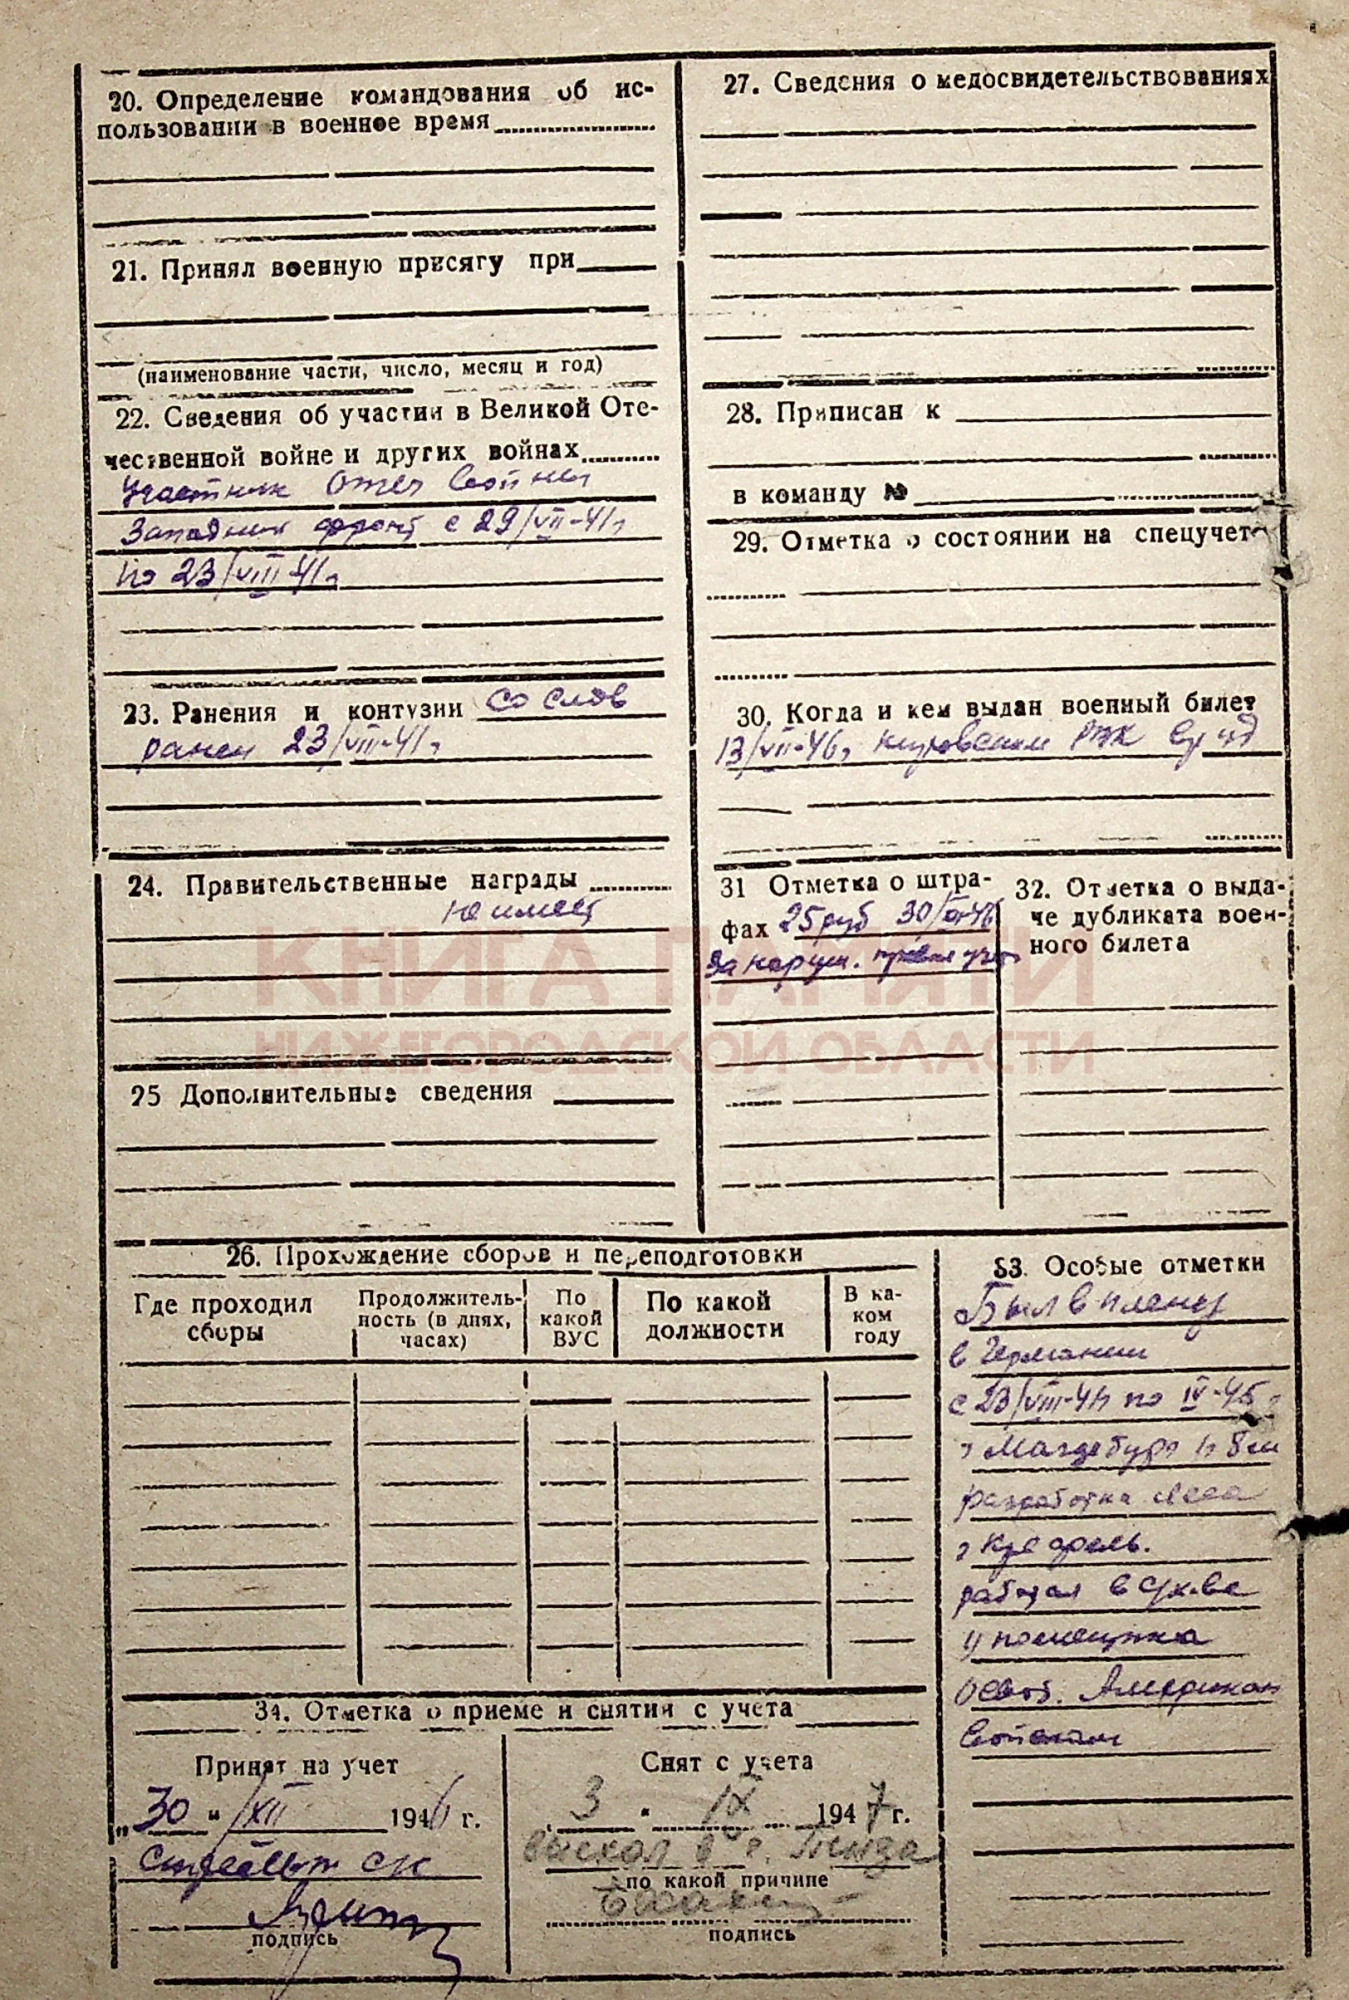 20. Определение командования об ис-
пользовании в военное время
21. Принял военную присягу при
(наименование части, число, месяц и год)
22. Сведения об участии в Великой Оте-
чественной войне и других войнах
Участник Отеч войны
Западный фронт с 29/VII-41г
по 23/VIII-41г
23. Ранения и контузии со слов
ранен 23/VIII-41г
24. Правительственные награды
не имеет
25 Дополнительные сведения
27. Сведения о медосвидетельствованиях
28. Приписан к
в команду №
29. Отметка о состоянии на спецучете
30. Когда и кем выдан военный билет
13/VII-46г Кировским РВК
31 Отметка о штра-
фах 25 руб 30/
за наруш. правил учета
32. Отметка о выда-
че дубликата воен-
ного билета
КНИГА ПАМЯТИ
НИЖЕГОРОДСКОЙ ОБЛАСТИ
26. Прохождение сборов и переподготовки
Где проходил
сборы
Продолжитель-
ность (в днях,
часах)
По
какой
ВУС
По какой
должности
В ка-
ком
году
33. Особые отметки
Был в плену
в Германии
с 23/VIII-41г по IV-45г
г Магдебург
разработка леса
г
работал в с/х-ве
у помещика
освоб. Американ
войсками
34. Отметка о приеме и снятии с учета
Принят на учет
„30" XII 1946 г.
подпись
Снят с учета
„3" IX 1947 г.
выехал в г.
по какой причине
подпись